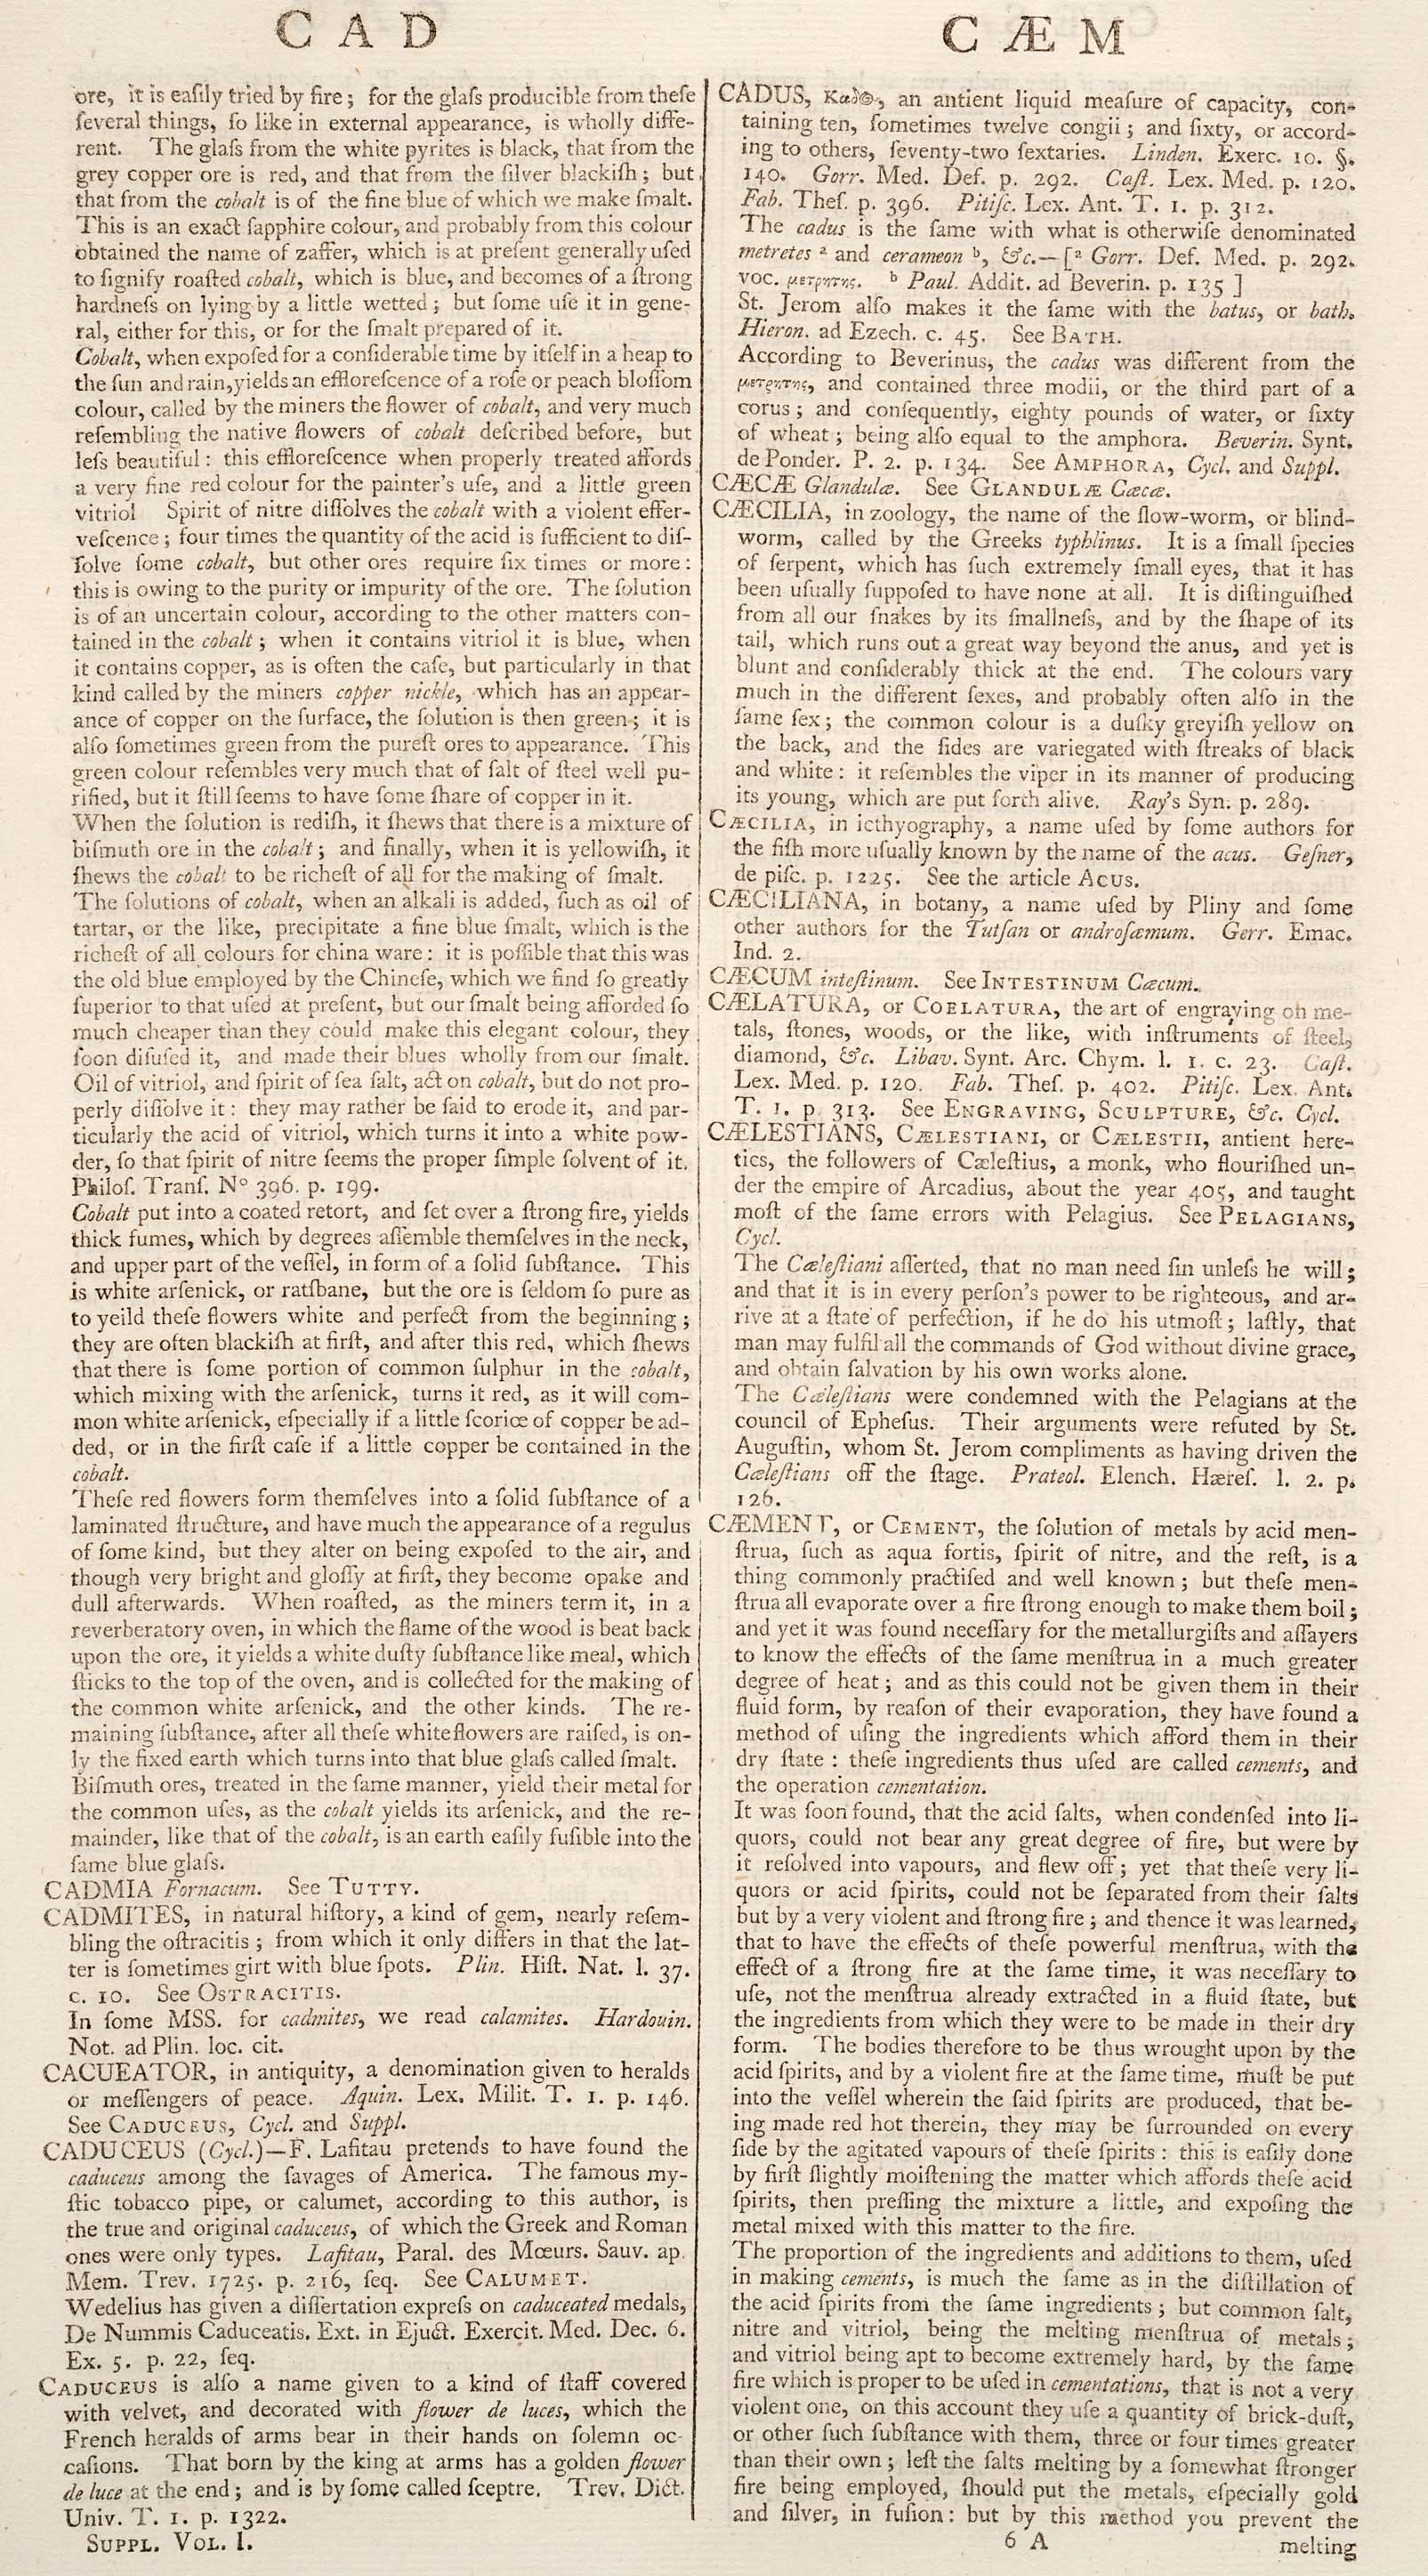 C A D
ore, it is eaſily tried by fire; for the glaſs producible from theſe
ſeveral things, ſo like in external appearance, is wholly diffe-
rent. The glaſs from the white pyrites is black, that from the
grey copper ore is red, and that from the ſilver blackiſh; but
that from the cobalt is of the fine blue of which we make ſmalt.
This is an exact ſapphire colour, and probably from this colour
obtained the name of zaffer, which is at preſent generally uſed
to ſignify roaſted cobalt, which is blue, and becomes of a ſtrong
hardneſs on lying by a little wetted; but ſome uſe it in gene-
ral, either for this, or for the ſmalt prepared of it.
Cobalt, when expoſed for a conſiderable time by itſelf in a heap to
the ſun and rain, yields an effloreſcence of a roſe or peach bloſſom
colour, called by the miners the flower of cobalt, and very much
reſembling the native flowers of cobalt deſcribed before, but
leſs beautiful: this effloreſcence when properly treated affords
a very fine red colour for the painter's uſe, and a little green
vitriol Spirit of nitre diſſolves the cobalt with a violent effer-
veſcence; four times the quantity of the acid is ſufficient to diſ-
ſolve ſome cobalt, but other ores require ſix times or more:
this is owing to the purity or impurity of the ore. The ſolution
is of an uncertain colour, according to the other matters con-
tained in the cobalt; when it contains vitriol it is blue, when
it contains copper, as is often the caſe, but particularly in that
kind called by the miners copper nickle, which has an appear-
ance of copper on the ſurface, the ſolution is then green; it is
alſo ſometimes green from the pureſt ores to appearance. This
green colour reſembles very much that of ſalt of ſteel well pu-
rified, but it ſtill ſeems to have ſome ſhare of copper in it.
When the ſolution is rediſh, it ſhews that there is a mixture of
biſmuth ore in the cobalt; and finally, when it is yellowiſh, it
ſhews the cobalt to be richeſt of all for the making of ſmalt.
The ſolutions of cobalt, when an alkali is added, ſuch as oil of
tartar, or the like, precipitate a fine blue ſmalt, which is the
richeſt of all colours for china ware: it is poſſible that this was
the old blue employed by the Chineſe, which we find ſo greatly
ſuperior to that uſed at preſent, but our ſmalt being afforded ſo
much cheaper than they could make this elegant colour, they
ſoon diſuſed it, and made their blues wholly from our ſmalt.
Oil of vitriol, and ſpirit of ſea ſalt, act on cobalt, but do not pro-
perly diſſolve it: they may rather be ſaid to erode it, and par-
ticularly the acid of vitriol, which turns it into a white pow-
der, ſo that ſpirit of nitre ſeems the proper ſimple ſolvent of it.
Philoſ. Tranſ. N° 396. p. 199.
Cobalt put into a coated retort, and ſet over a ſtrong fire, yields
thick fumes, which by degrees aſſemble themſelves in the neck,
and upper part of the veſſel, in form of a ſolid ſubſtance. This
is white arſenick, or ratſbane, but the ore is ſeldom ſo pure as
to yeild theſe flowers white and perfect from the beginning;
they are often blackiſh at firſt, and after this red, which ſhews
that there is ſome portion of common ſulphur in the cobalt,
which mixing with the arſenick, turns it red, as it will com-
mon white arſenick, eſpecially if a little ſcoriœ of copper be ad-
ded, or in the firſt caſe if a little copper be contained in the
cobalt.
Theſe red flowers form themſelves into a ſolid ſubſtance of a
laminated ſtructure, and have much the appearance of a regulus
of ſome kind, but they alter on being expoſed to the air, and
though very bright and gloſſy at firſt, they become opake and
dull afterwards. When roaſted, as the miners term it, in a
reverberatory oven, in which the flame of the wood is beat back
upon the ore, it yields a white duſty ſubſtance like meal, which
ſticks to the top of the oven, and is collected for the making of
the common white arſenick, and the other kinds. The re-
maining ſubſtance, after all theſe white flowers are raiſed, is on-
ly the fixed earth which turns into that blue glaſs called ſmalt.
Biſmuth ores, treated in the ſame manner, yield their metal for
the common uſes, as the cobalt yields its arſenick, and the re-
mainder, like that of the cobalt, is an earth eaſily fuſible into the
ſame blue glaſs.
CADMIA Fornacum. See TUTTY.
CADMITES, in natural hiſtory, a kind of gem, nearly reſem-
bling the oſtracitis; from which it only differs in that the lat-
ter is ſometimes girt with blue ſpots. Plin. Hiſt. Nat. l. 37.
c. 10. See OSTRACITIS.
In ſome MSS. for cadmites, we read calamites. Hardouin.
Not. ad Plin. loc. cit.
CACUEATOR, in antiquity, a denomination given to heralds
or meſſengers of peace. Aquin. Lex. Milit. T. 1. p. 146.
See CADUCEUS, Cycl. and Suppl.
CADUCEUS (Cycl.)—F. Lafitau pretends to have found the
caduceus among the ſavages of America. The famous my-
ſtic tobacco pipe, or calumet, according to this author, is
the true and original caduceus, of which the Greek and Roman
ones were only types. Lafitau, Paral. des Mœurs. Sauv. ap.
Mem. Trev. 1725. p. 216, ſeq. See CALUMET.
Wedelius has given a diſſertation expreſs on caduceated medals,
De Nummis Caduceatis. Ext. in Ejuct. Exercit. Med. Dec. 6.
Ex. 5. p. 22, ſeq.
CADUCEUS is alſo a name given to a kind of ſtaff covered
with velvet, and decorated with flower de luces, which the
French heralds of arms bear in their hands on ſolemn oc-
caſions. That born by the king at arms has a golden flower
de luce at the end; and is by ſome called ſceptre. Trev. Dict.
Univ. T. 1. p. 1322.
SUPPL. VOL. I.
C Æ M
CADUS, Καδος, an antient liquid meaſure of capacity, con-
taining ten, ſometimes twelve congii; and ſixty, or accord-
ing to others, ſeventy-two ſextaries. Linden. Exerc. 10. §.
140. Gorr. Med. Def. p. 292. Caſt. Lex. Med. p. 120.
Fab. Theſ. p. 396. Pitiſc. Lex. Ant. T. 1. p. 312.
The cadus is the ſame with what is otherwiſe denominated
metretes ᵃ and cerameon ᵇ, &c.—[ᵃ Gorr. Def. Med. p. 292.
voc. μετρητης. ᵇ Paul. Addit. ad Beverin. p. 135 ]
St. Jerom alſo makes it the ſame with the batus, or bath.
Hieron. ad Ezech. c. 45. See BATH.
According to Beverinus, the cadus was different from the
μετρητης, and contained three modii, or the third part of a
corus; and conſequently, eighty pounds of water, or ſixty
of wheat; being alſo equal to the amphora. Beverin. Synt.
de Ponder. P. 2. p. 134. See AMPHORA, Cycl. and Suppl.
CÆCÆ Glandulæ. See GLANDULÆ Cæcæ.
CÆCILIA, in zoology, the name of the ſlow-worm, or blind-
worm, called by the Greeks typhlinus. It is a ſmall ſpecies
of ſerpent, which has ſuch extremely ſmall eyes, that it has
been uſually ſuppoſed to have none at all. It is diſtinguiſhed
from all our ſnakes by its ſmallneſs, and by the ſhape of its
tail, which runs out a great way beyond the anus, and yet is
blunt and conſiderably thick at the end. The colours vary
much in the different ſexes, and probably often alſo in the
ſame ſex; the common colour is a duſky greyiſh yellow on
the back, and the ſides are variegated with ſtreaks of black
and white: it reſembles the viper in its manner of producing
its young, which are put forth alive. Ray's Syn. p. 289.
CÆCILIA, in icthyography, a name uſed by ſome authors for
the fiſh more uſually known by the name of the acus. Geſner,
de piſc. p. 1225. See the article ACUS.
CÆCILIANA, in botany, a name uſed by Pliny and ſome
other authors for the Tutſan or androſæmum. Gerr. Emac.
Ind. 2.
CÆCUM inteſtinum. See INTESTINUM Cæcum.
CÆLATURA, or COELATURA, the art of engraving on me-
tals, ſtones, woods, or the like, with inſtruments of ſteel,
diamond, &c. Libav. Synt. Arc. Chym. l. 1. c. 23. Caſt.
Lex. Med. p. 120. Fab. Theſ. p. 402. Pitiſc. Lex. Ant.
T. 1. p. 313. See ENGRAVING, SCULPTURE, &c. Cycl.
CÆLESTIANS, CÆLESTIANI, or CÆLESTII, antient here-
tics, the followers of Cæleſtius, a monk, who flouriſhed un-
der the empire of Arcadius, about the year 405, and taught
moſt of the ſame errors with Pelagius. See PELAGIANS,
Cycl.
The Cæleſtiani aſſerted, that no man need ſin unleſs he will;
and that it is in every perſon's power to be righteous, and ar-
rive at a ſtate of perfection, if he do his utmoſt; laſtly, that
man may fulfil all the commands of God without divine grace,
and obtain ſalvation by his own works alone.
The Cæleſtians were condemned with the Pelagians at the
council of Epheſus. Their arguments were refuted by St.
Auguſtin, whom St. Jerom compliments as having driven the
Cæleſtians off the ſtage. Prateol. Elench. Hæreſ. l. 2. p.
126.
CÆMENT, or CEMENT, the ſolution of metals by acid men-
ſtrua, ſuch as aqua fortis, ſpirit of nitre, and the reſt, is a
thing commonly practiſed and well known; but theſe men-
ſtrua all evaporate over a fire ſtrong enough to make them boil;
and yet it was found neceſſary for the metallurgiſts and aſſayers
to know the effects of the ſame menſtrua in a much greater
degree of heat; and as this could not be given them in their
fluid form, by reaſon of their evaporation, they have found a
method of uſing the ingredients which afford them in their
dry ſtate: theſe ingredients thus uſed are called cements, and
the operation cementation.
It was ſoon found, that the acid ſalts, when condenſed into li-
quors, could not bear any great degree of fire, but were by
it reſolved into vapours, and flew off; yet that theſe very li-
quors or acid ſpirits, could not be ſeparated from their ſalts
but by a very violent and ſtrong fire; and thence it was learned,
that to have the effects of theſe powerful menſtrua, with the
effect of a ſtrong fire at the ſame time, it was neceſſary to
uſe, not the menſtrua already extracted in a fluid ſtate, but
the ingredients from which they were to be made in their dry
form. The bodies therefore to be thus wrought upon by the
acid ſpirits, and by a violent fire at the ſame time, muſt be put
into the veſſel wherein the ſaid ſpirits are produced, that be-
ing made red hot therein, they may be ſurrounded on every
ſide by the agitated vapours of theſe ſpirits: this is eaſily done
by firſt ſlightly moiſtening the matter which affords theſe acid
ſpirits, then preſſing the mixture a little, and expoſing the
metal mixed with this matter to the fire.
The proportion of the ingredients and additions to them, uſed
in making cements, is much the ſame as in the diſtillation of
the acid ſpirits from the ſame ingredients; but common ſalt,
nitre and vitriol, being the melting menſtrua of metals;
and vitriol being apt to become extremely hard, by the ſame
fire which is proper to be uſed in cementations, that is not a very
violent one, on this account they uſe a quantity of brick-duſt,
or other ſuch ſubſtance with them, three or four times greater
than their own; leſt the ſalts melting by a ſomewhat ſtronger
fire being employed, ſhould put the metals, eſpecially gold
and ſilver, in fuſion: but by this method you prevent the
6 A
melting